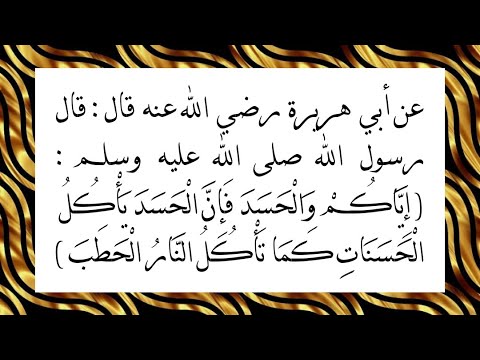 عن أبي هريرة رضي الله عنه قال : قال
رسول الله صلى الله عليه وسلم :
( إِيَّاكُمْ وَالْحَسَدَ فَإِنَّ الْحَسَدَ يَأْكُلُ
الْحَسَنَاتِ كَمَا تَأْكُلُ النَّارُ الْحَطَبَ )